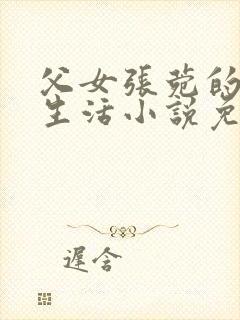 父女張苑的
生活小說免
遲含